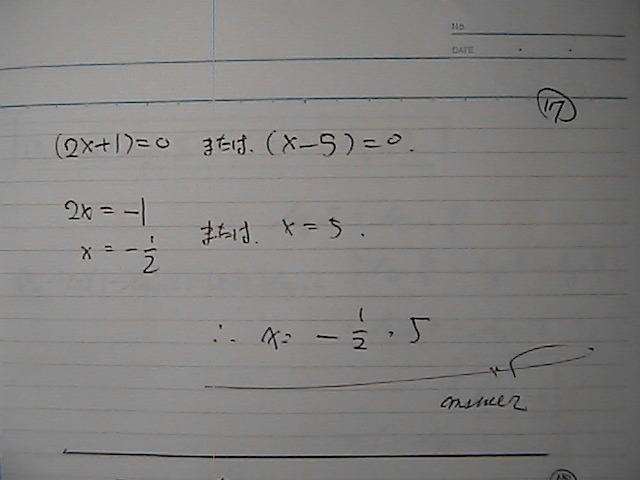 No.
DATE
17
(2x+1)=0 または. (x-5)=0.
2x = -1
x = -1/2 または. x = 5.
∴ x= -1/2, 5
answer